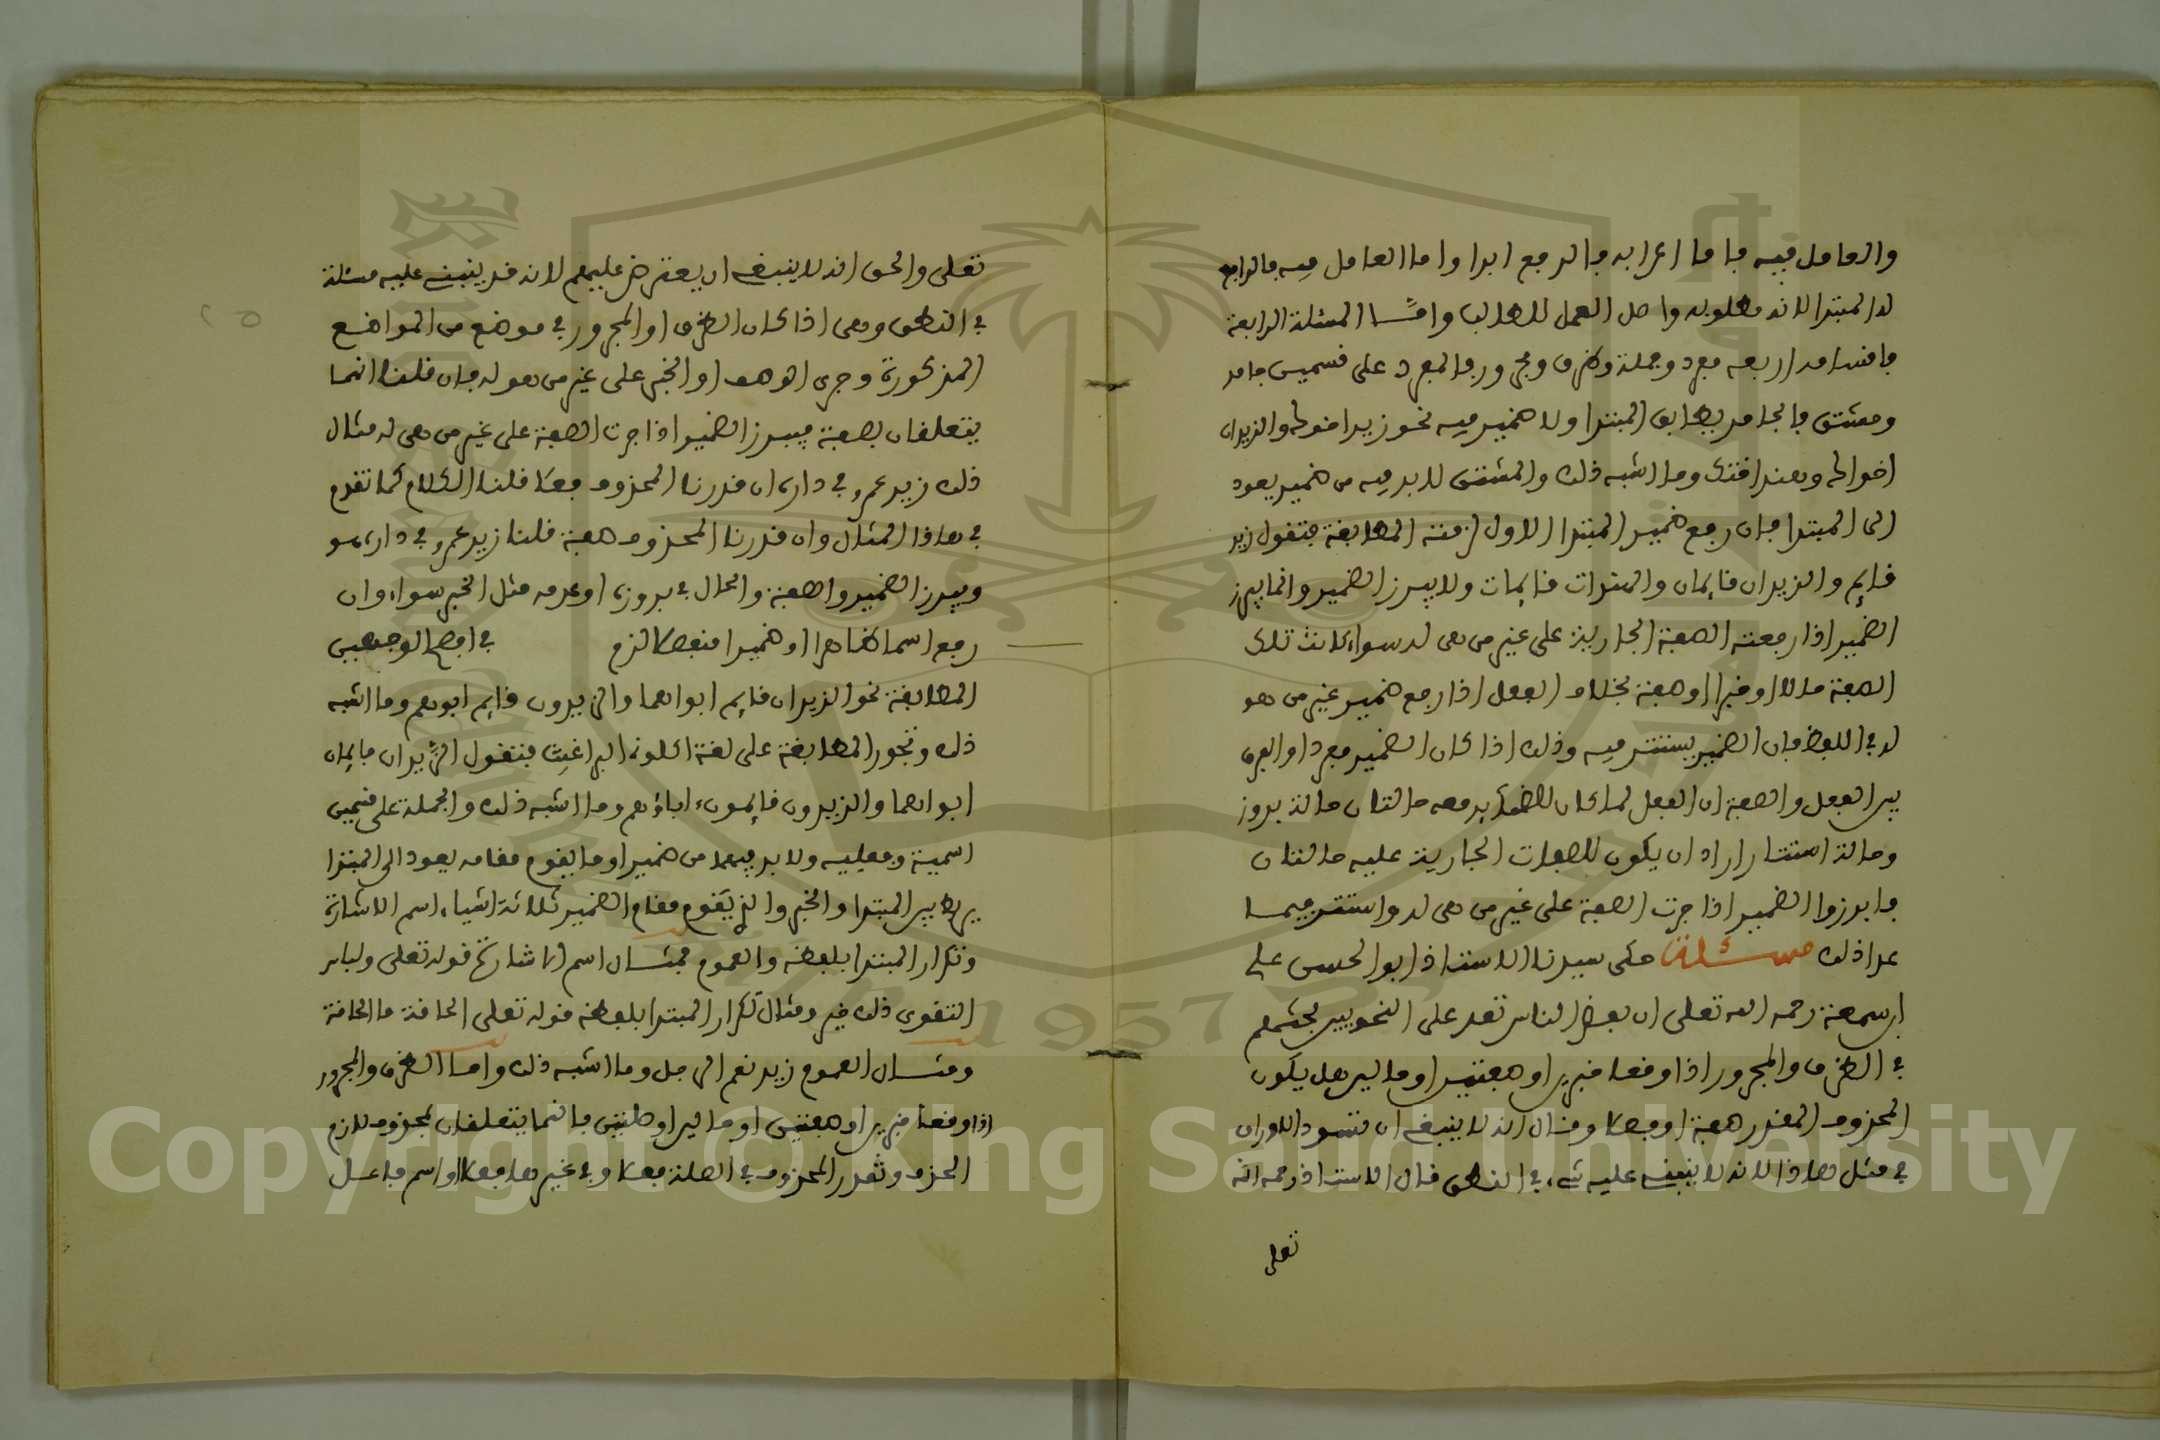 والعامل فيه فاما اعرابه فالرفع ابدا واما العامل فيه فالرافع
له المبتدا لانه مطلوبه واصل العمل للطالب وامّا المسئلة الرابعة
فاقسامه اربعه مفرد وجملة وظرف ومجرور فالمفرد على قسمين جامد
ومشتق فالجامد يطابق المبتدا ولا ضمير فيه نحو زيد اخوك والزيدان
اخواك وهند اختك وما اشبه ذلك والمشتق لا بد فيه من ضمير يعود
الى المبتدا فان رفع ضمير المبتدا الاول لزمته المطابقة فتقول زيد
قايم والزيدان قايمان والهندات قايمات ولا يبرز الضمير وانما يبرز
الضمير اذا رفعته الصفة الجارية على غير من هى له سواء كانت تلك
الصفة حالا او خبرا او صفة بخلاف الفعل اذا رفع ضمير غير من هو
له في اللفظ فان الضمير يستتر فيه وذلك اذا كان الضمير مفردا والفرق
بين الفعل والصفة ان الفعل لما كان للضمير معه حالتان حالة بروز
وحالة استتار اراد ان يكون للصفات الجارية عليه حالتان
فابرزوا الضمير اذا جرت الصفة على غير من هى له واستتر فيما
عدا ذلك مسئلة حكى سيدنا الاستاذ ابو الحسن على
ابن سمعة رحمه الله تعلى ان بعض الناس تعد على النحويين بحثهم
في الظرف والمجرور اذا وقعا خبرين او صفتين او حالين هل يكون
المحذوف المقدر صفة او فعلا وقال انه لا ينبغي ان تسود الاوراق
في مثل هاذا لانه لا ينبني عليه شىء في النطق قال الاستاذ رحمه الله
تعلى
تعلى والحق انه لا ينبغي ان يعترض عليهم لانه قد ينبني عليه مسئلة
في النطق وهى اذا كان الظرف او المجرور في موضع من المواضع
المذكورة وجرى الوصف او الخبر على غير من هو له فان قلنا انهما
يتعلقان بصفة فيبرز الضمير اذا جرت الصفة على غير من هى له مثال
ذلك زيد عمرو في داره ان قدرنا المحذوف فعلا قلنا الكلام كما تقدم
في هاذا المثال وان قدرنا المحذوف صفة قلنا زيد عمرو في داره هو
ويبرز الضمير والصفة والحال في بروزه او عدمه مثل الخبر سواء وان
رفع اسما ظاهرا او ضميرا منفصلا لزم في افصح الوجهين
المطابقة نحو الزيدان قايم ابواهما والزيدون قايم ابوهم وما اشبه
ذلك وتجوز المطابقة على لغة اكلونى البراغيث فتقول الزَّيدان قايمان
ابواهما والزيدون قايمون ءاباؤهم وما اشبه ذلك والجملة على قسمين
اسمية وفعليه ولا بد فيهما من ضمير او ما يقوم مقامه يعود الى المبتدا
يربط بين المبتدا والخبر والذي يقوم مقام الضمير ثلاثة اشياء اسم الاشارة
وتكرار المبتدا بلفظه والعموم فمثال اسم الاشارة قوله تعلى ولباس
التقوى ذلك خير ومثال تكرار المبتدا بلفظه قوله تعلى الحاقة ما الحاقة
ومثال العموم زيد نعم الرجل وما اشبه ذلك واما الظرف والمجرور
اذا وقعا خبرين او صفتين او حالين او صلتين فانهما يتعلقان بمحذوف لازم
الحذف وتقدر المحذوف في الصلة فعلا وفي غيرها فعلا او اسم فاعل